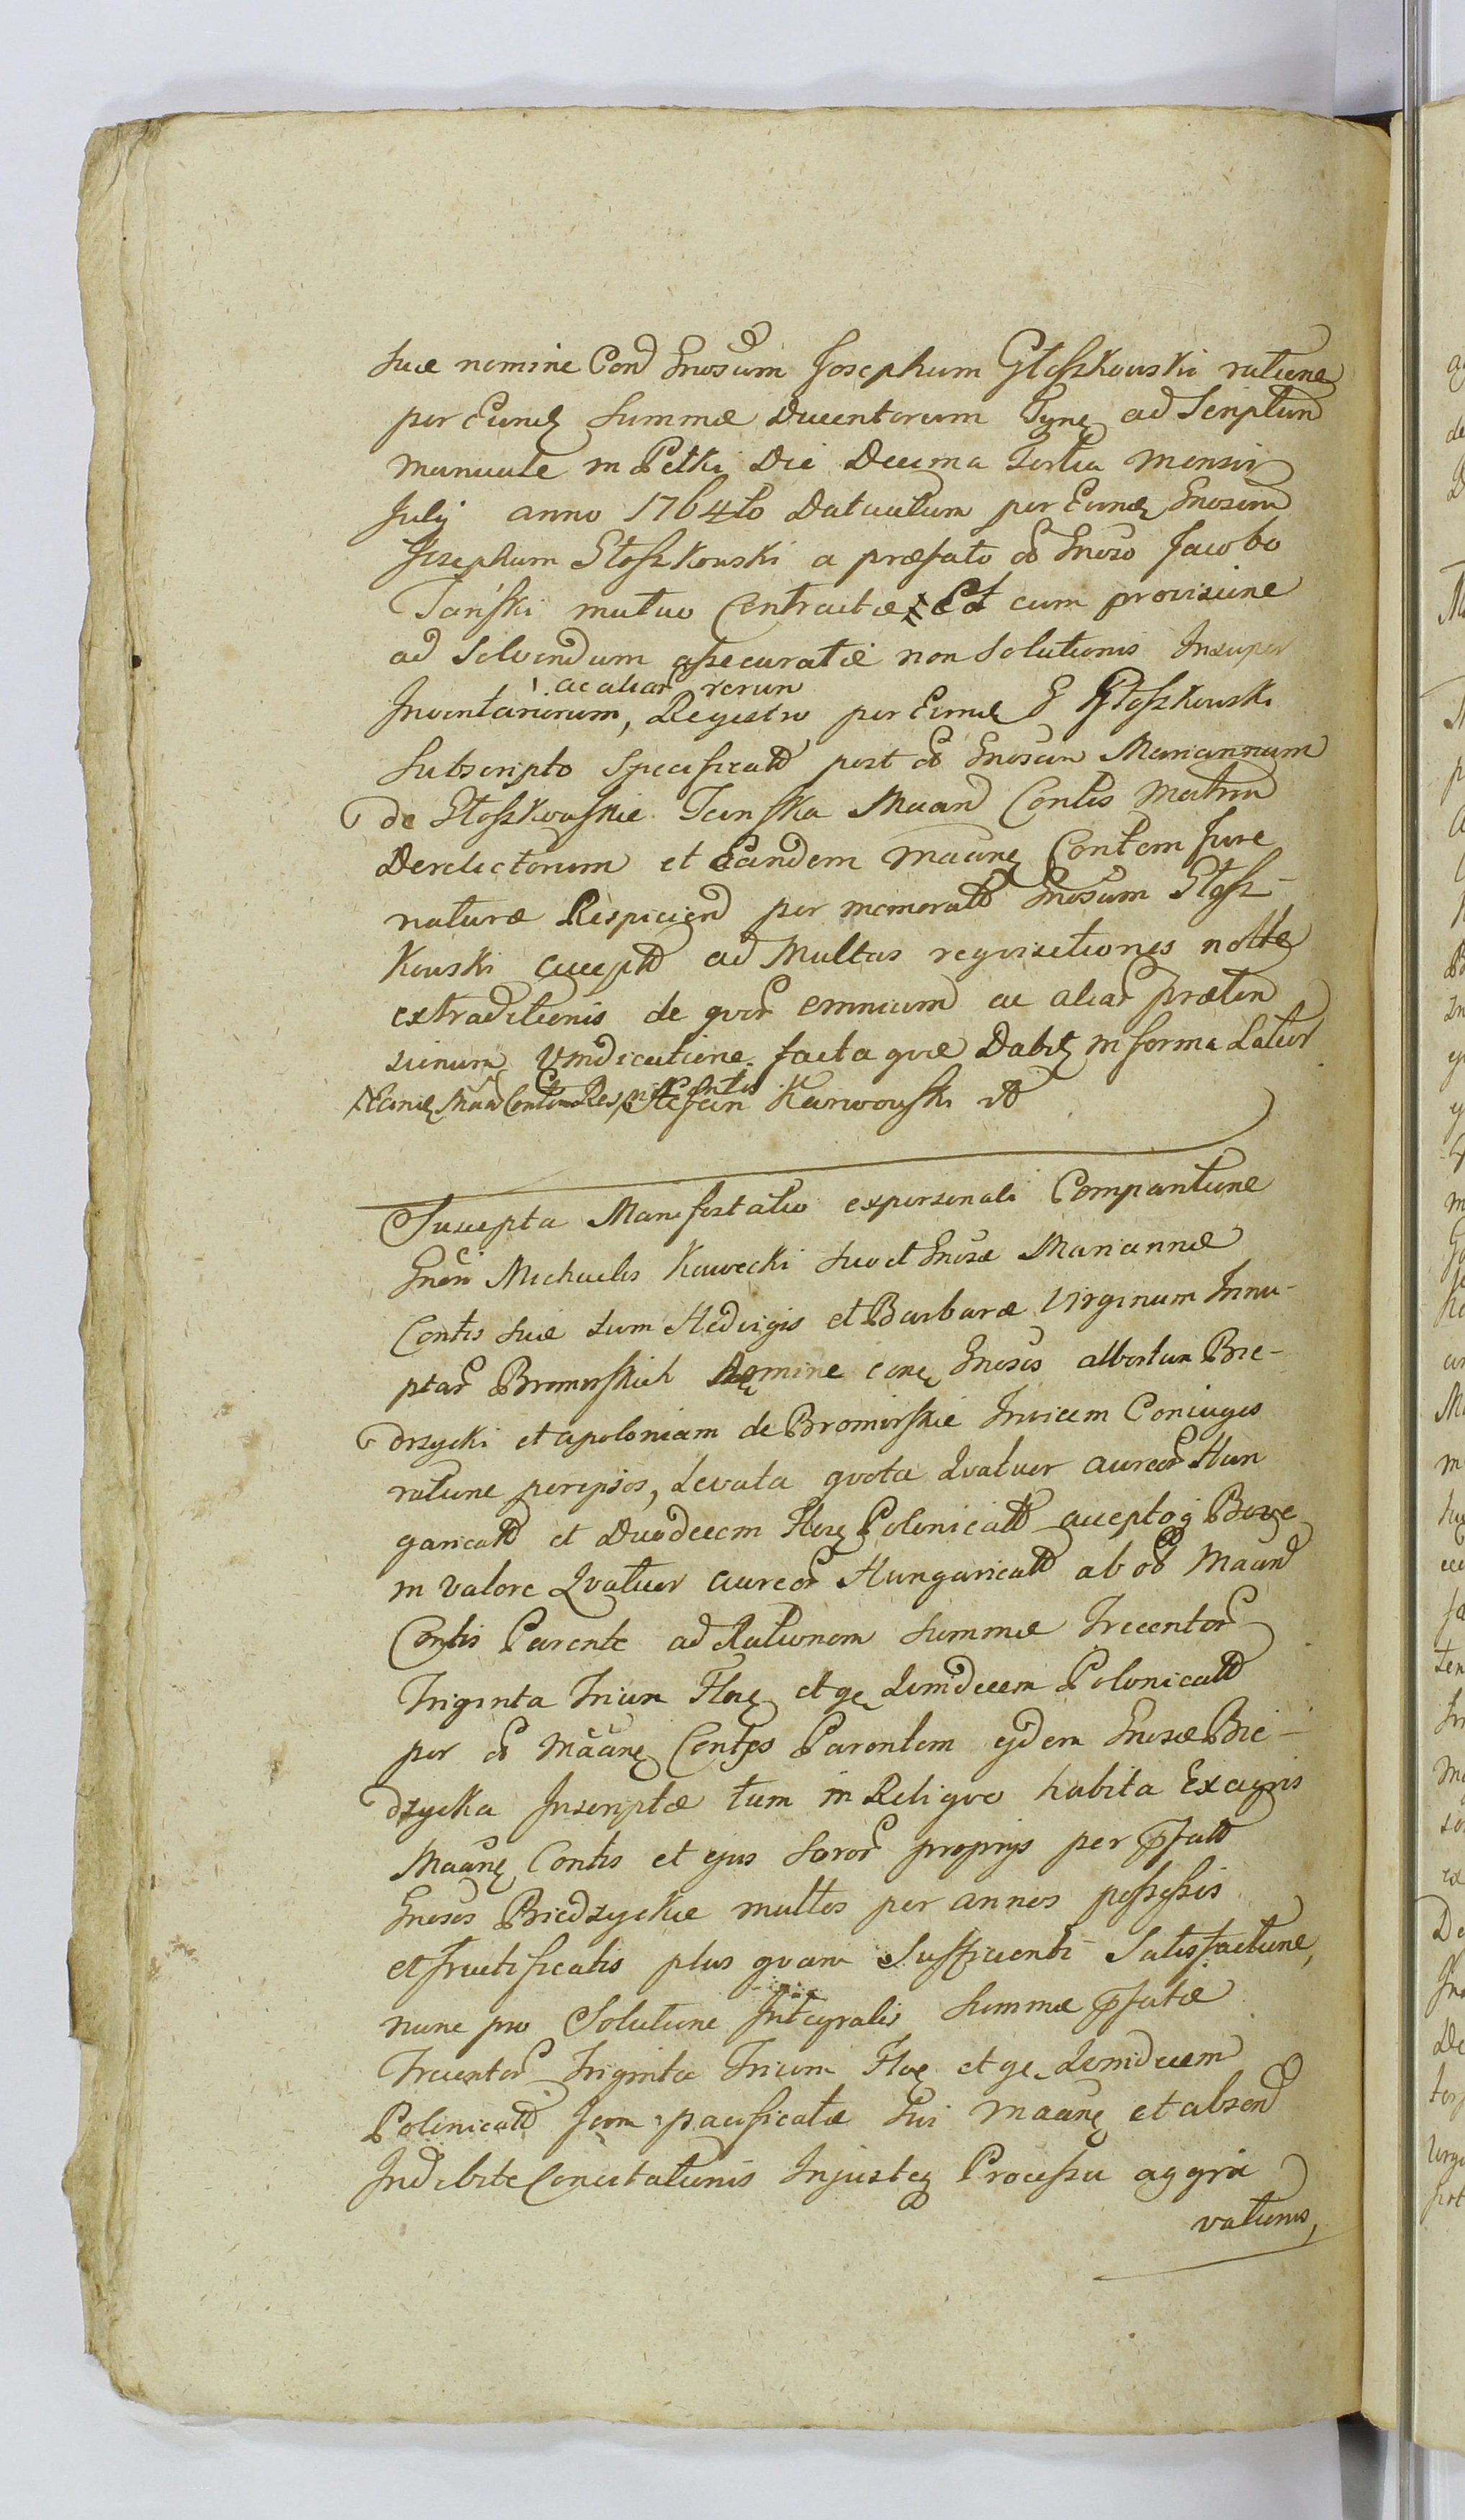 suæ nomine Con Gnosum Josephum Głoszkowski ratione
per Eund Summæ Ducentorum Tynf ad Scriptum
manuale in Pełki Die Decima Tertia Mensis
July anno 1764to Datum per Eund Gnosum
Josephum Głoszkowski a præfato o Gnoso Jacobo
Tański mutuo Contractæ Et cum provisione
ad Solvendum assecuratæ non Solutionis Insuper
ac aliar rerum
Inventariorum, Registro per Eund G Głoszkowski
Subscripto Specificat post o Gnosam Mariannam
de Głoszkowskie Tańska Maan Contis Matrem
Derelictorum et Eandem Maane Contem Jure
naturæ Respicien per memorat Gnosum Głosz-
kowski accept ad Multas requisitiones nolle
extraditionis de quor omnium ac aliar præten
sionum Vindicatione facta quæ Dabit in forma Latior
Stefan Karwowski
Suscepta Manifestatio ex personali Comparitione
Gnosi Michaelis Kawecki suo et Gnosæ Mariannæ
Contis suæ tum Hedvigis et Barbaræ Virginum Innu-
ptar Bromirskich Nomine cone Gnosos Albertum Bie-
drzycki et Apoloniam de Bromirskie Invicem Coniuges
ratione per ipsos, Levata quota Quatuor aureor Hun
garicall et Duodecem Flor Polonicall acceptoq Bove
in valore Quatuor aureor Hungaricall ab o Maan
Contis Parente ad Rationem Summæ Trecentor
Triginta Trium Flor et gr Quindecem Polonicall
per o Maane Contis Parentem ejdem Gnosæ Bie-
drzycka Inscriptæ tum in Reliquo habita Ex agris
Maane Contis et ejus Soror proprys per pfatt
Gnosos Biedrzyckie multos per annos possessis
et fructificatis plus quam Sufficienti Satisfactione,
nunc pro Solutione Integralis Summæ pfatæ
Trecentor Triginta Trium Flor et gr Quindecem
Polonicall Jam pacificatæ Sui Maane et absen
Indebite Concitationis Injusteq Processu aggra
vationis,